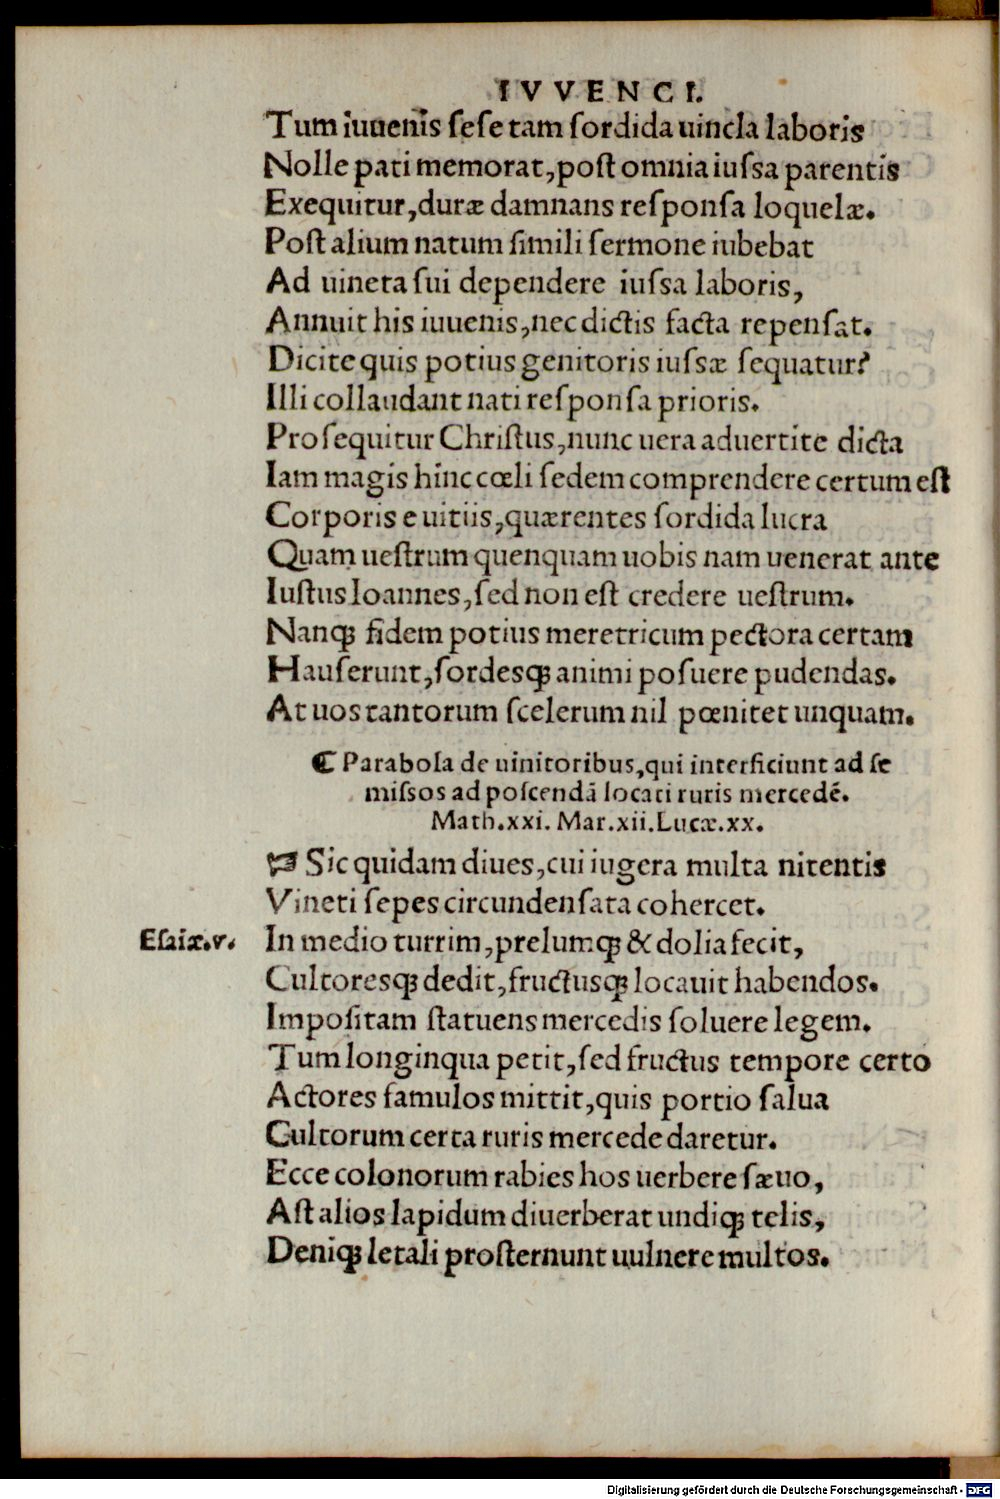 IVVENCI.
Tum iuuenis seſe tam ſordida uincla laboris
Nolle pati memorat, poſt omnia iuſſa parentis
Exequitur, duræ damnans reſponſa loquelæ.
Poſt alium natum ſimili ſermone iubebat
Ad uineta ſui dependere iuſſa laboris,
Annuit his iuuenis, nec dictis facta repenſat.
Dicite quis potius genitoris iuſſæ ſequatur?
Illi collaudant nati reſponſa prioris.
Proſequitur Chriſtus, nunc uera aduertite dicta
Iam magis hinc cœli ſedem comprendere certum eſt
Corporis e uitiis, quærentes ſordida lucra
Quam ueſtrum quenquam uobis nam uenerat ante
Iuſtus Ioannes, ſed non eſt credere ueſtrum.
Nanqꝫ fidem potius meretricum pectora certam
Hauſerunt, ſordesqꝫ animi poſuere pudendas.
At uos tantorum ſcelerum nil pœnitet unquam.
⸿ Parabola de uinitoribus, qui interficiunt ad ſe
miſſos ad poſcendã locati ruris mercedẽ.
Math.xxi. Mar.xii. Lucæ.xx.
☞ Sic quidam diues, cui iugera multa nitentis
Vineti ſepes circundenſata cohercet.
Eſaiæ.v. In medio turrim, prelumqꝫ & dolia fecit,
Cultoresqꝫ dedit, fructusqꝫ locauit habendos.
Impoſitam ſtatuens mercedis ſoluere legem.
Tum longinqua petit, ſed fructus tempore certo
Actores famulos mittit, quis portio ſalua
Cultorum certa ruris mercede daretur.
Ecce colonorum rabies hos uerbere ſæuo,
Aſt alios lapidum diuerberat undiqꝫ telis,
Deniqꝫ letali proſternunt uulnere multos.
Digitalisierung gefördert durch die Deutsche Forschungsgemeinschaft - DFG